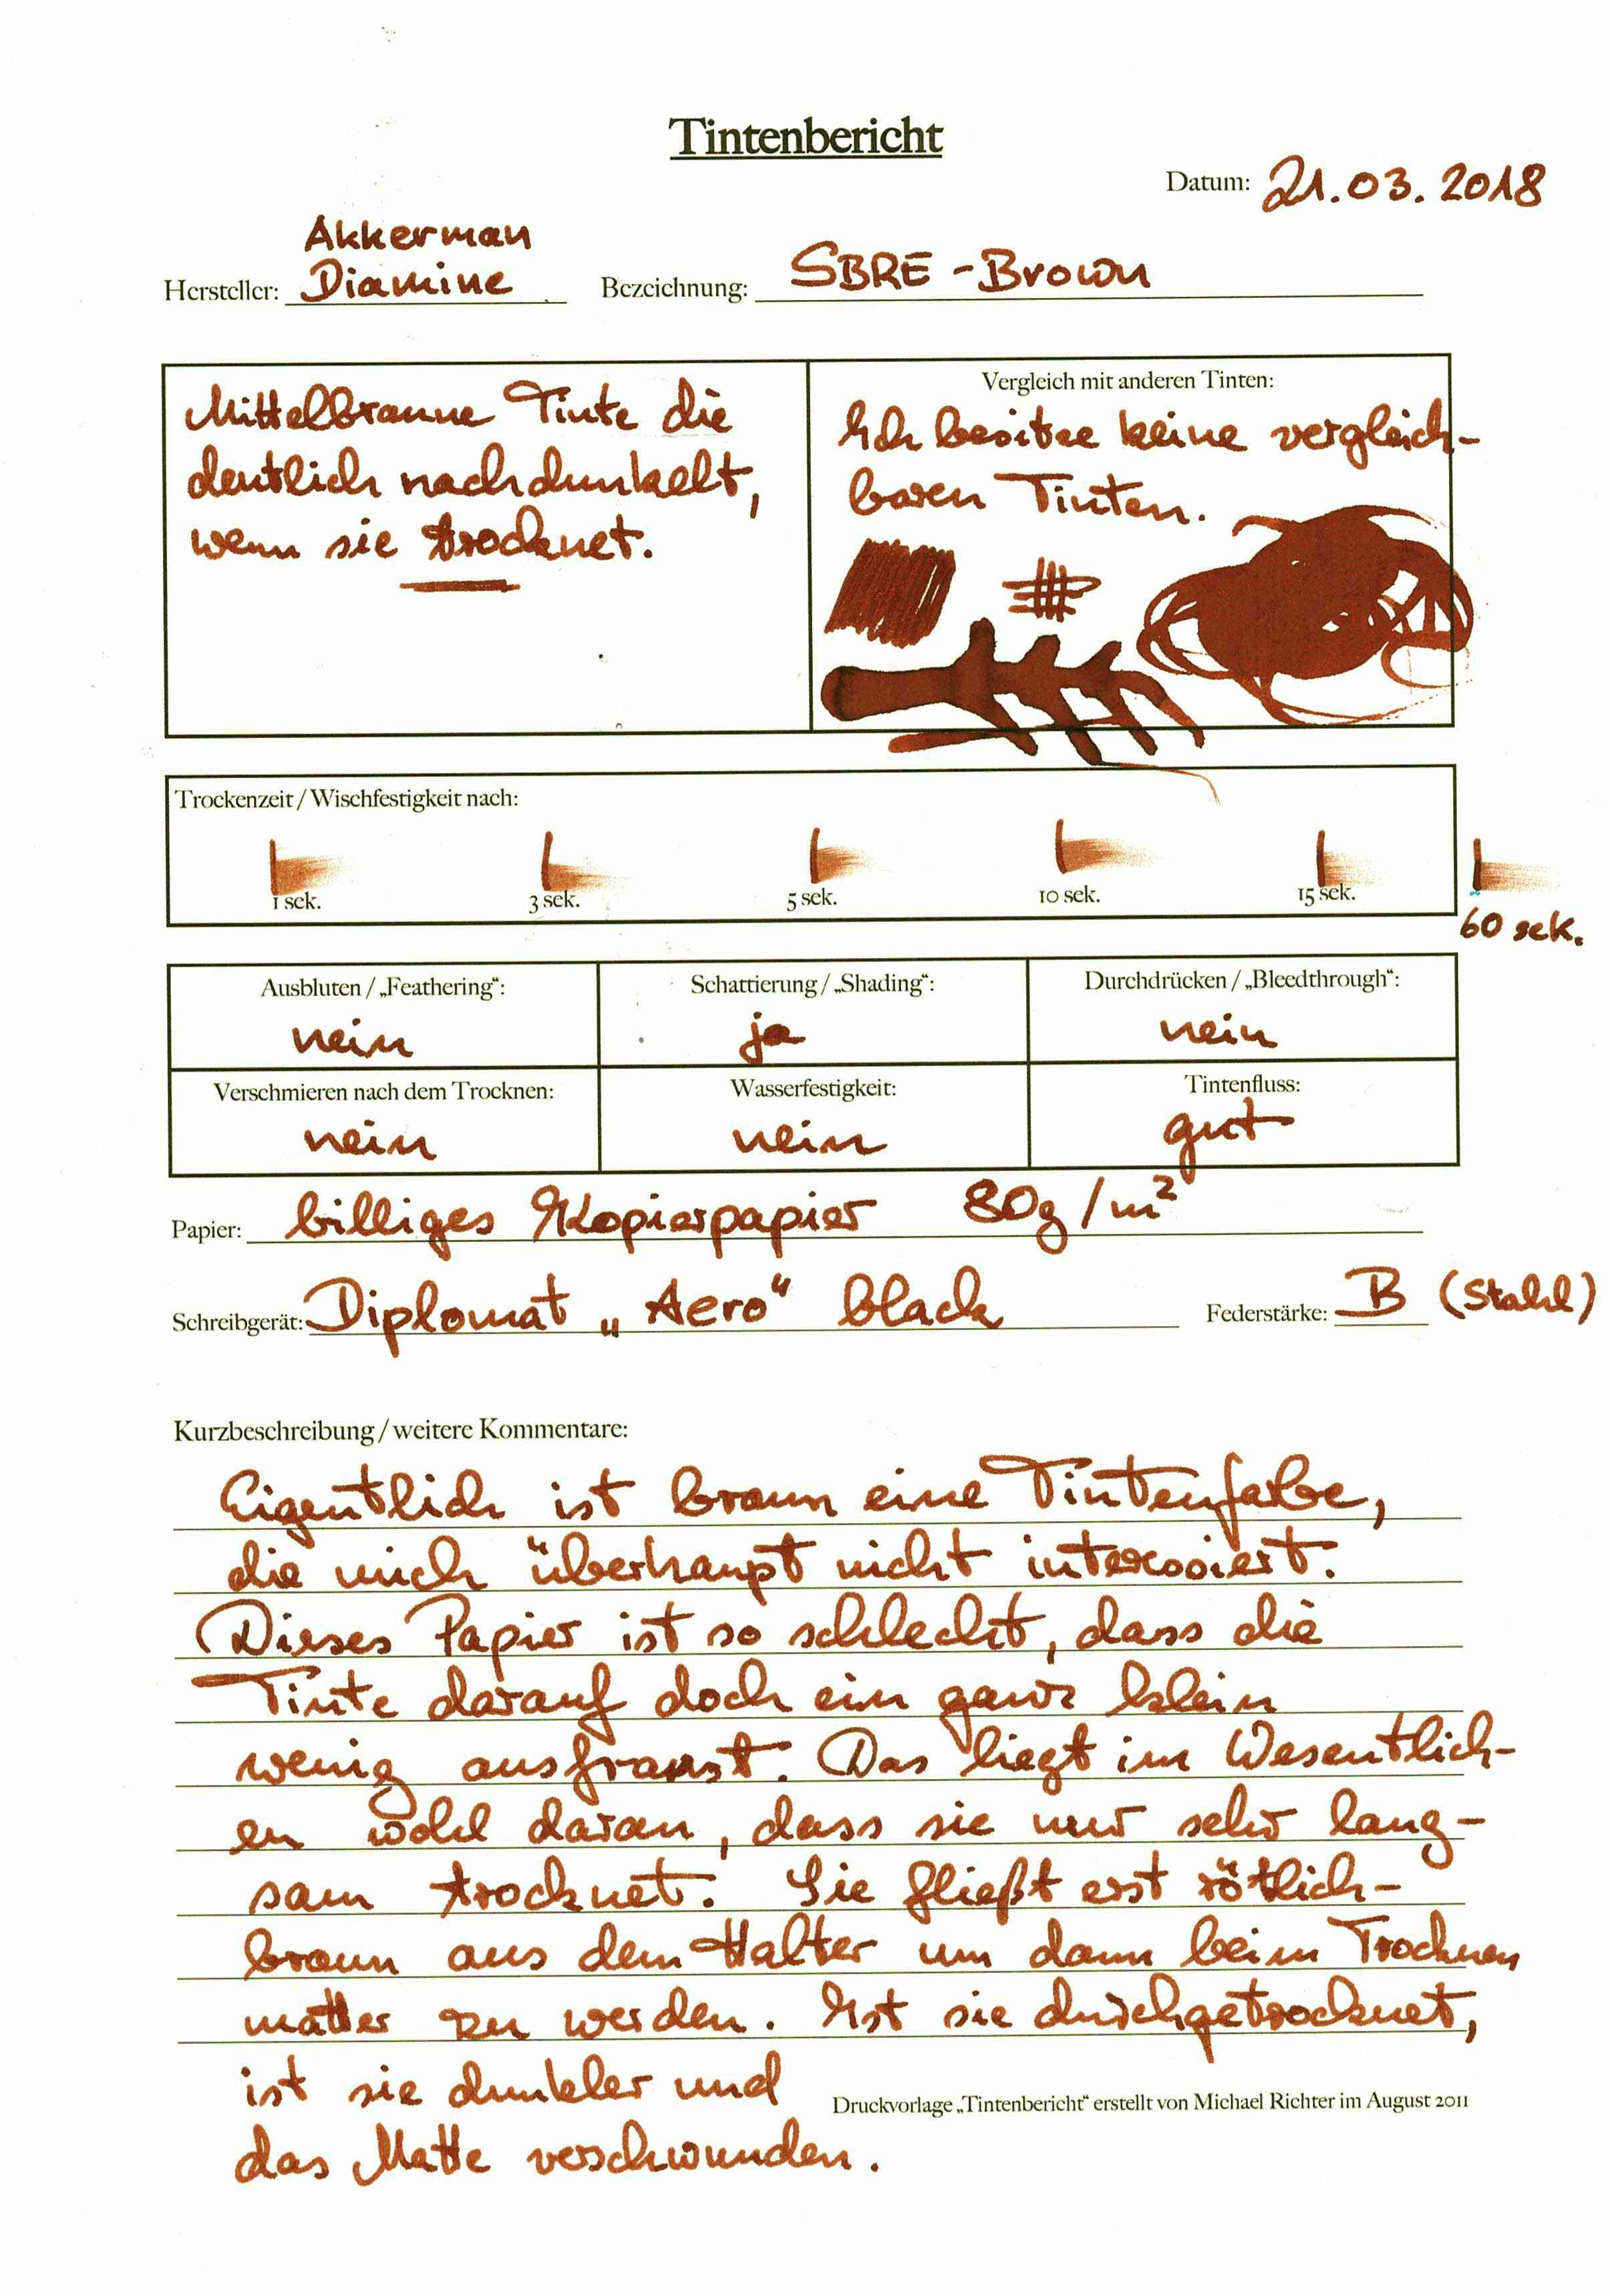 Tintenbericht
Datum: 21.03.2018
Akkerman
Hersteller: Diamine Bezeichnung: SBRE-Brown
Mittelbraune Tinte die
deutlich nachdunkelt,
wenn sie trocknet.
Vergleich mit anderen Tinten:
Ich besitze keine vergleich-
baren Tinten.
Trockenzeit / Wischfestigkeit nach:
1 sek. 3 sek. 5 sek. 10 sek. 15 sek.
60 sek.
Ausbluten / „Feathering“: Schattierung / „Shading“: Durchdrücken / „Bleedthrough“:
nein ja nein
Verschmieren nach dem Trocknen: Wasserfestigkeit: Tintenfluss:
nein nein gut
Papier: billiges Kopierpapier 80g/m²
Schreibgerät: Diplomat „Aero“ black Federstärke: B (Stahl)
Kurzbeschreibung / weitere Kommentare:
Eigentlich ist braun eine Tintenfarbe,
die mich überhaupt nicht interessiert.
Dieses Papier ist so schlecht, dass die
Tinte darauf doch ein ganz klein
wenig ausfranst. Das liegt im Wesentlich-
en wohl daran, dass sie nur sehr lang-
sam trocknet. Sie fließt erst rötlich-
braun aus dem Halter um dann beim Trocknen
matter zu werden. Ist sie durchgetrocknet,
ist sie dunkler und
das Matte verschwunden.
Druckvorlage „Tintenbericht“ erstellt von Michael Richter im August 2011